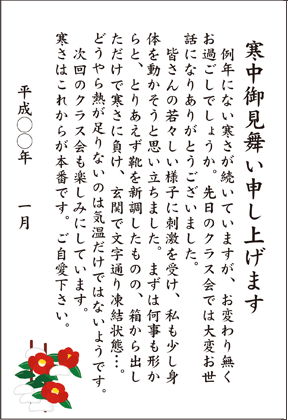 寒中御見舞い申し上げます
例年にない寒さが続いていますが、お変わり無く
お過ごしでしょうか。先日のクラス会では大変お世
話になりありがとうございました。
皆さんの若々しい様子に刺激を受け、私も少し身
体を動かそうと思い立ちました。まずは何事も形か
らと、とりあえず靴を新調したものの、箱から出し
ただけで寒さに負け、玄関で文字通り凍結状態…。
どうやら熱が足りないのは気温だけではないようです。
次回のクラス会も楽しみにしています。
寒さはこれからが本番です。ご自愛下さい。
平成〇〇年 一月